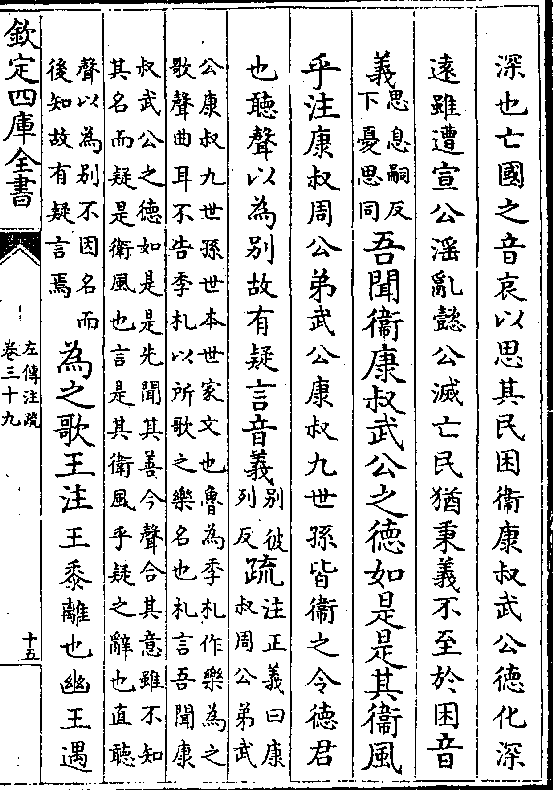 深也亡國之音哀以思其民困衞康叔武公德化深
遠雖遭宣公滛亂懿公滅亡民猶秉義不至於困音
義思息嗣反
下憂思同吾聞衞康叔武公之德如是是其衞風
乎注康叔周公弟武公康叔九世孫皆衞之令德君
也聽聲以為別故有疑言音義别彼
列反疏注正義曰康
叔周公弟武
公康叔九世孫世本世家文也魯為季札作樂為之
歌聲曲耳不告季札以所歌之樂名也札言吾聞康
叔武公之德如是是先聞其善今聲合其意雖不知
其名而疑是衛風也言是其衛風乎疑之辭也直聽
聲以為别不因名而
後知故有疑言焉為之歌王注王黍離也幽王遇
欽定四庫全書
左傳注疏
卷三十九
十五